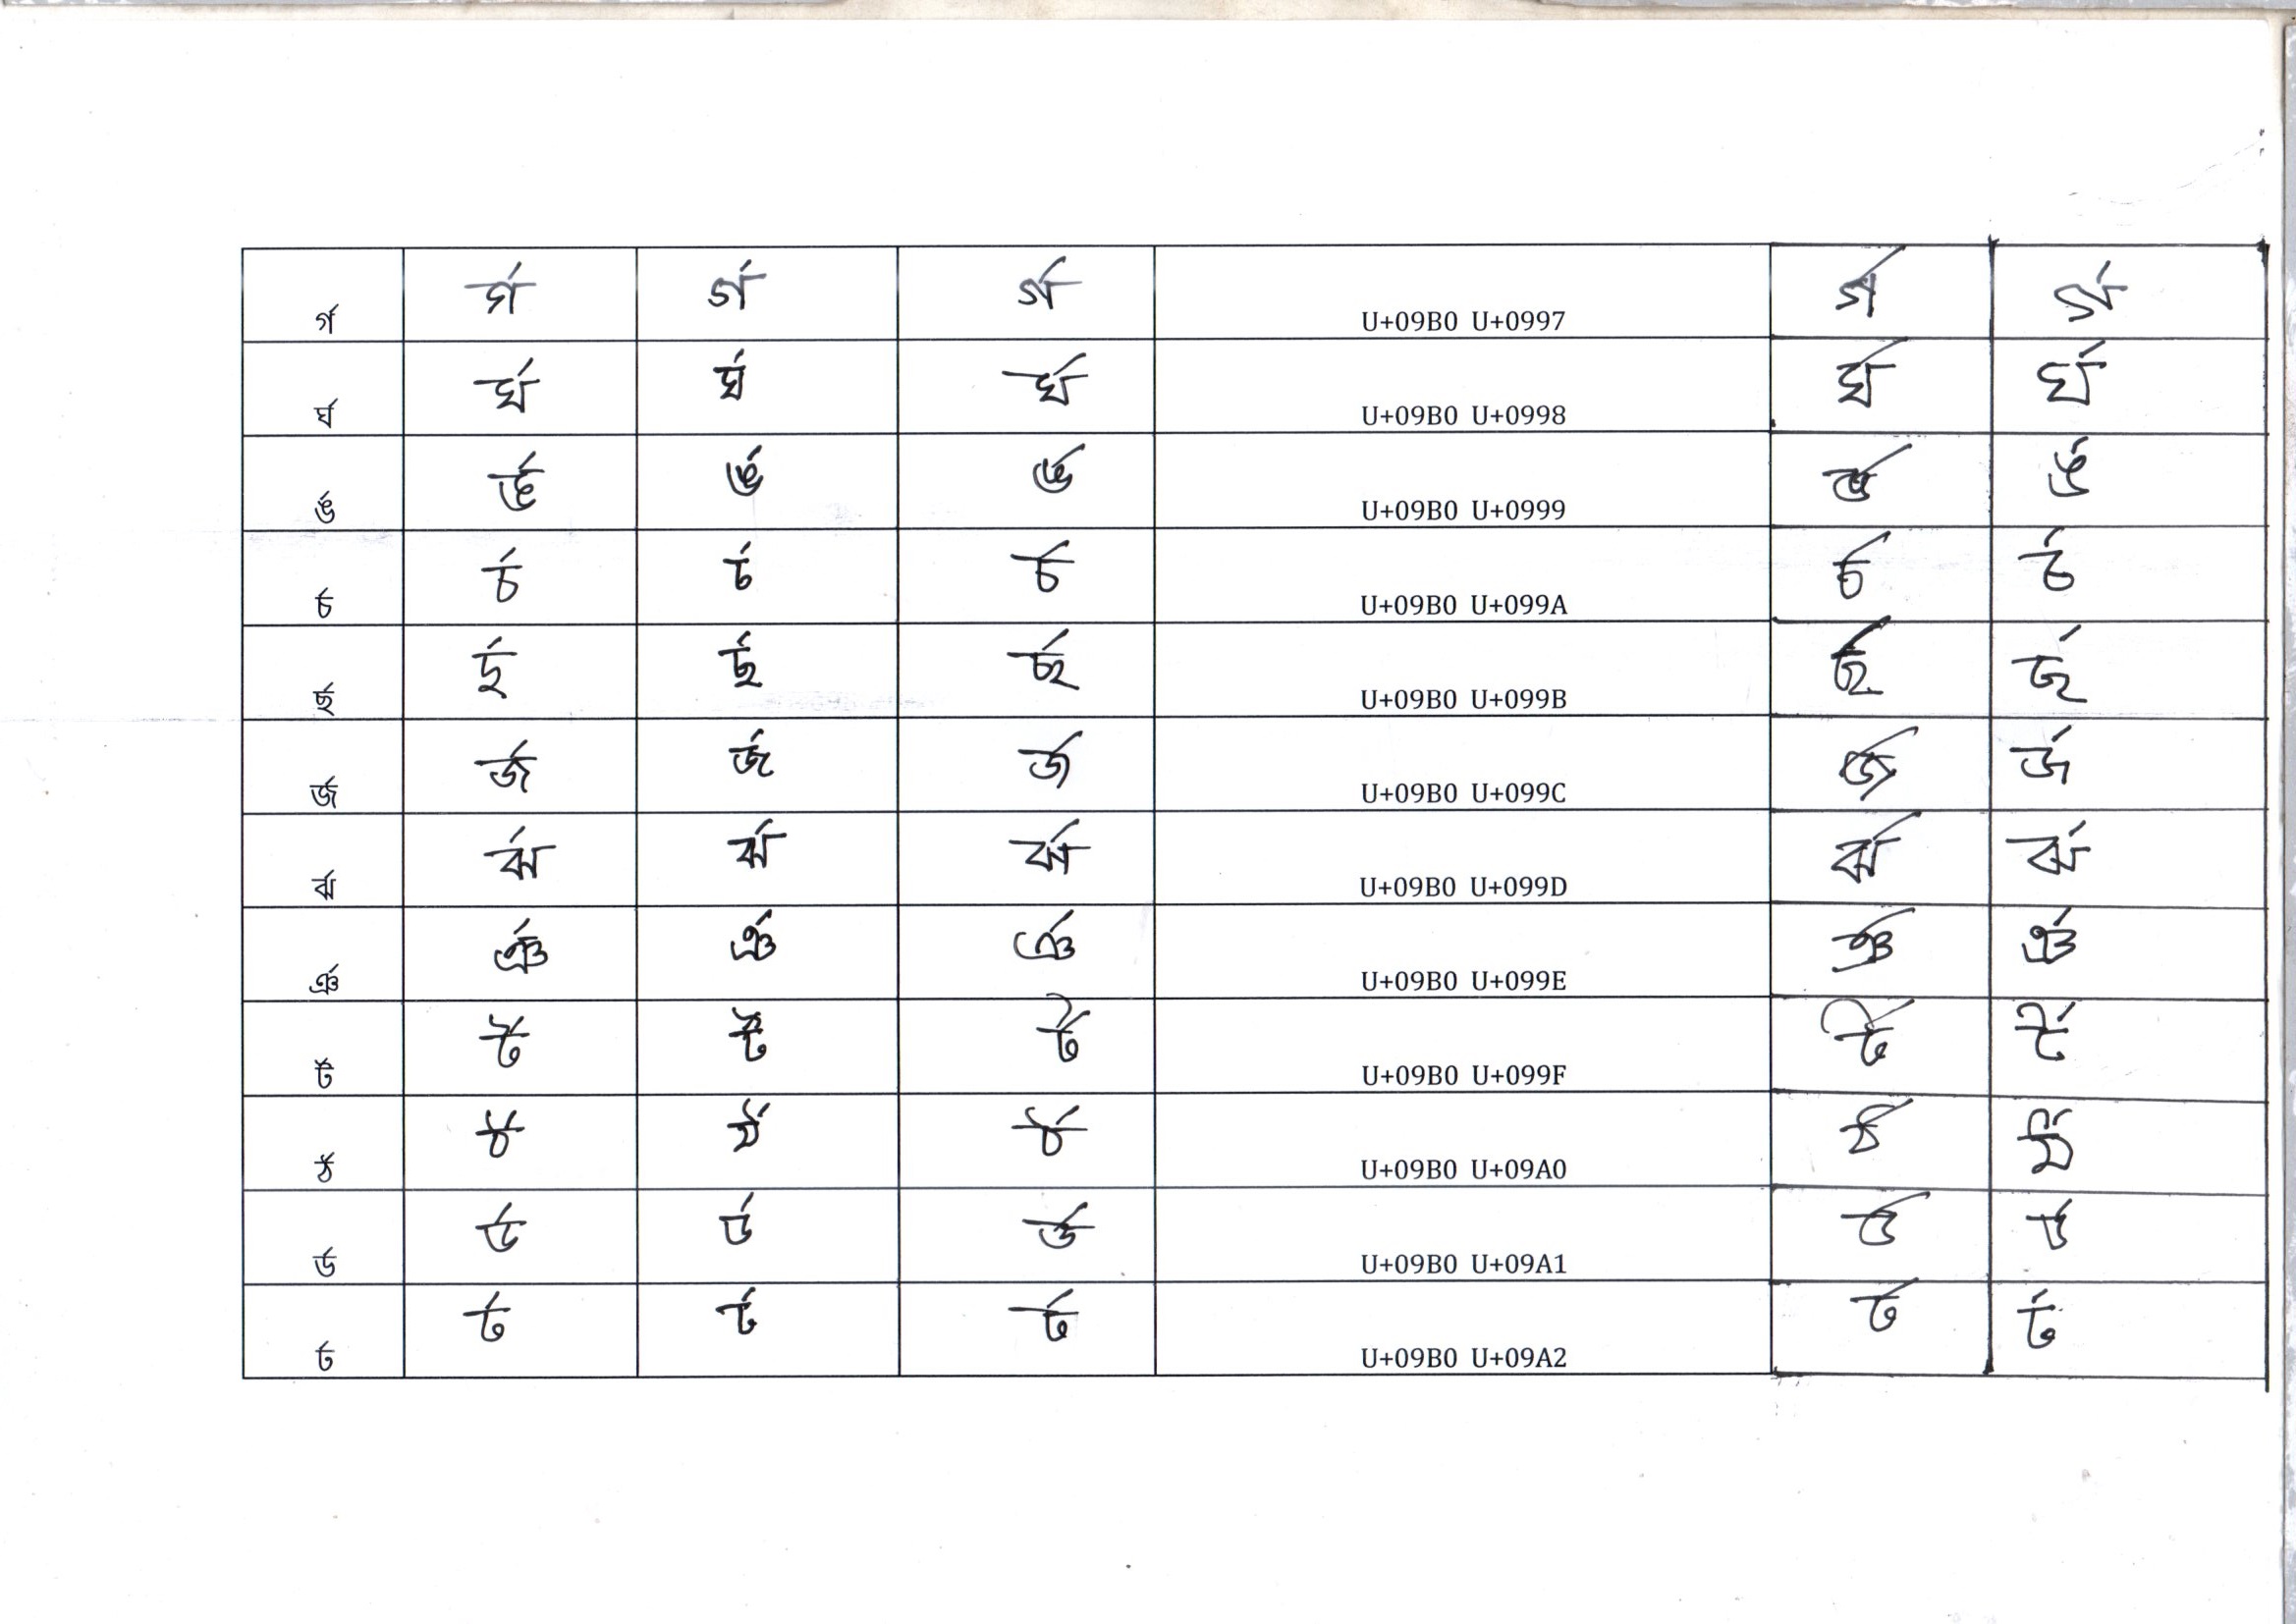 র্গ র্গ র্গ র্গ U+09B0 U+0997 র্গ র্গ
র্ঘ র্ঘ র্ঘ র্ঘ U+09B0 U+0998 র্ঘ র্ঘ
র্ঙ র্ঙ র্ঙ র্ঙ U+09B0 U+0999 র্ঙ র্ঙ
র্চ র্চ র্চ র্চ U+09B0 U+099A র্চ র্চ
র্ছ র্ছ র্ছ র্ছ U+09B0 U+099B র্ছ র্ছ
র্জ র্জ র্জ র্জ U+09B0 U+099C র্জ র্জ
র্ঝ র্ঝ র্ঝ র্ঝ U+09B0 U+099D র্ঝ র্ঝ
র্ঞ র্ঞ র্ঞ র্ঞ U+09B0 U+099E র্ঞ র্ঞ
র্ট র্ট র্ট র্ট U+09B0 U+099F র্ট র্ট
র্ঠ র্ঠ র্ঠ র্ঠ U+09B0 U+09A0 র্ঠ র্ঠ
র্ড র্ড র্ড র্ড U+09B0 U+09A1 র্ড র্ড
র্ঢ র্ঢ র্ঢ র্ঢ U+09B0 U+09A2 র্ঢ র্ঢ